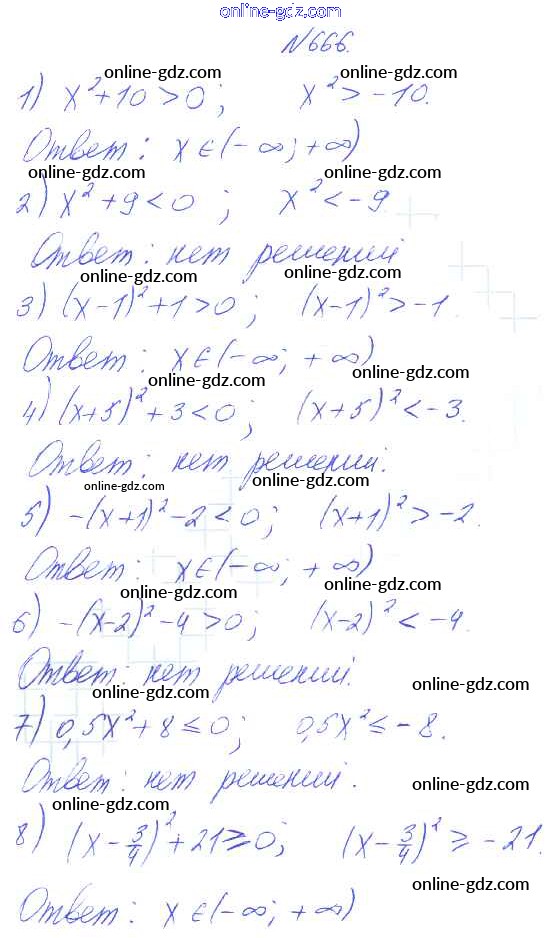 online-gdz.com
№666.
online-gdz.com online-gdz.com
1) x²+10>0; x²>-10.
Ответ: x∈(-∞;+∞)
online-gdz.com online-gdz.com
2) x²+9<0; x²<-9
Ответ: нет решений
online-gdz.com online-gdz.com
3) (x-1)²+1>0; (x-1)²>-1.
Ответ: x∈(-∞; +∞)
online-gdz.com online-gdz.com
4) (x+5)²+3<0; (x+5)²<-3.
Ответ: нет решений.
online-gdz.com online-gdz.com
5) -(x+1)²-2<0; (x+1)²>-2.
Ответ: x∈(-∞; +∞)
online-gdz.com online-gdz.com
6) -(x-2)²-4>0; (x-2)²<-4.
Ответ: нет решений.
online-gdz.com online-gdz.com
7) 0,5x²+8≤0; 0,5x²≤-8.
Ответ: нет решений.
online-gdz.com online-gdz.com
8) (x-3/4)²+21≥0; (x-3/4)²≥-21.
online-gdz.com
Ответ: x∈(-∞; +∞)